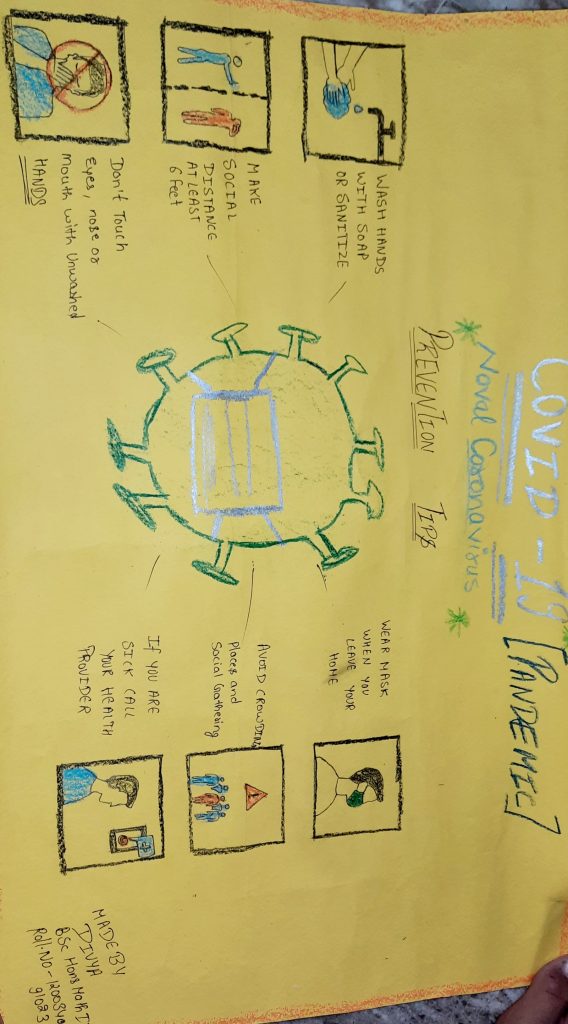 COVID-19 [PANDEMIC]
Noval Coronavirus
PREVENTION TIPS
WASH HANDS
WITH SOAP
OR SANITIZE
MAKE
SOCIAL
DISTANCE
AT LEAST
6 feet
Don't Touch
Eyes, nose or
mouth with Unwashed
HANDS
WEAR MASK
WHEN YOU
LEAVE YOUR
HOME
AVOID CROWDING
Places and
Social Gathering
IF YOU ARE
SICK CALL
YOUR HEALTH
PROVIDER
MADE BY
DIVYA
BSc Hons Math
Roll.No-